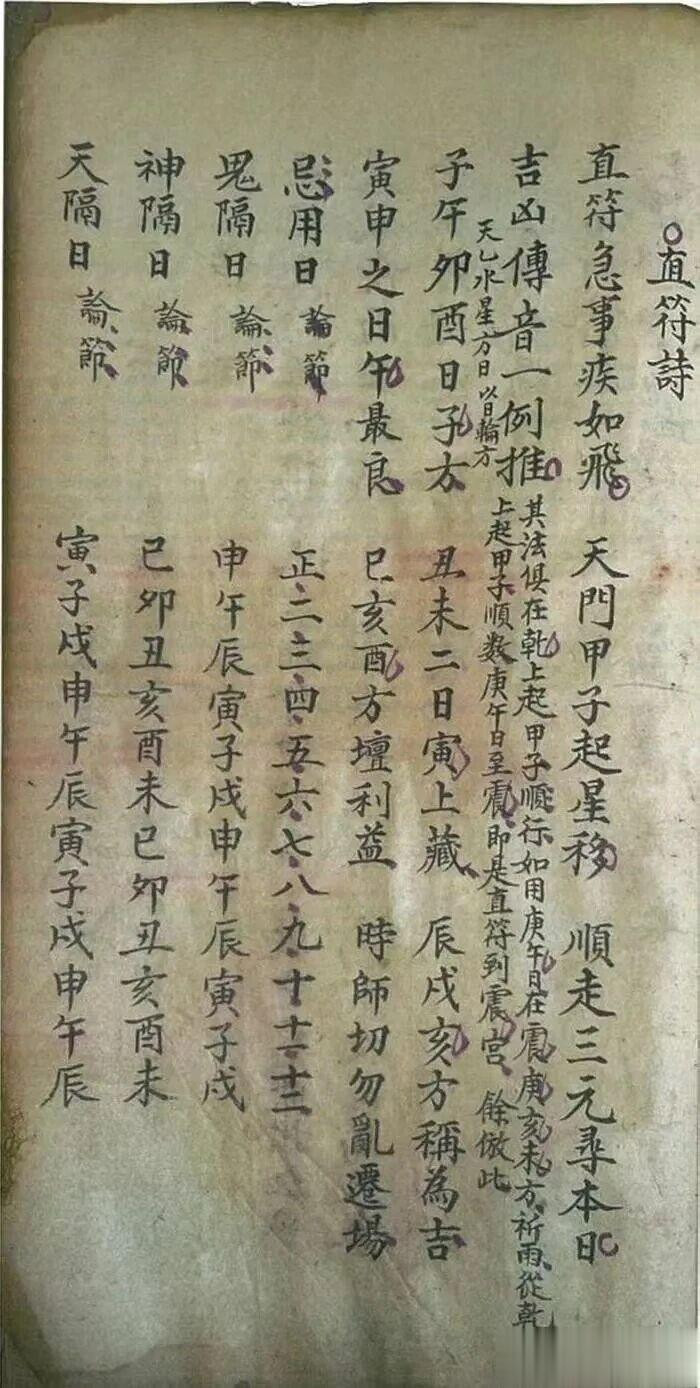 直符詩
直符急事疾如飛 天門甲子起星移 順走三元尋本日
吉凶傳音一例推 其法俱在乾上起甲子順行如用庚午日在震庚亥未方祈雨從乾
上起甲子順数庚午日至震即是直符到震宮餘倣此
天乙水星方日以日輪方
子午卯酉日子方 丑未二日寅上藏 辰戌亥方稱為吉
寅申之日午最良 巳亥酉方壇利益 時師切勿亂遷場
忌用日論節 正二三四五六七八九十十一十二
鬼隔日論節 申午辰寅子戌申午辰寅子戌
神隔日論節 巳卯丑亥酉未巳卯丑亥酉未
天隔日論節 寅子戌申午辰寅子戌申午辰